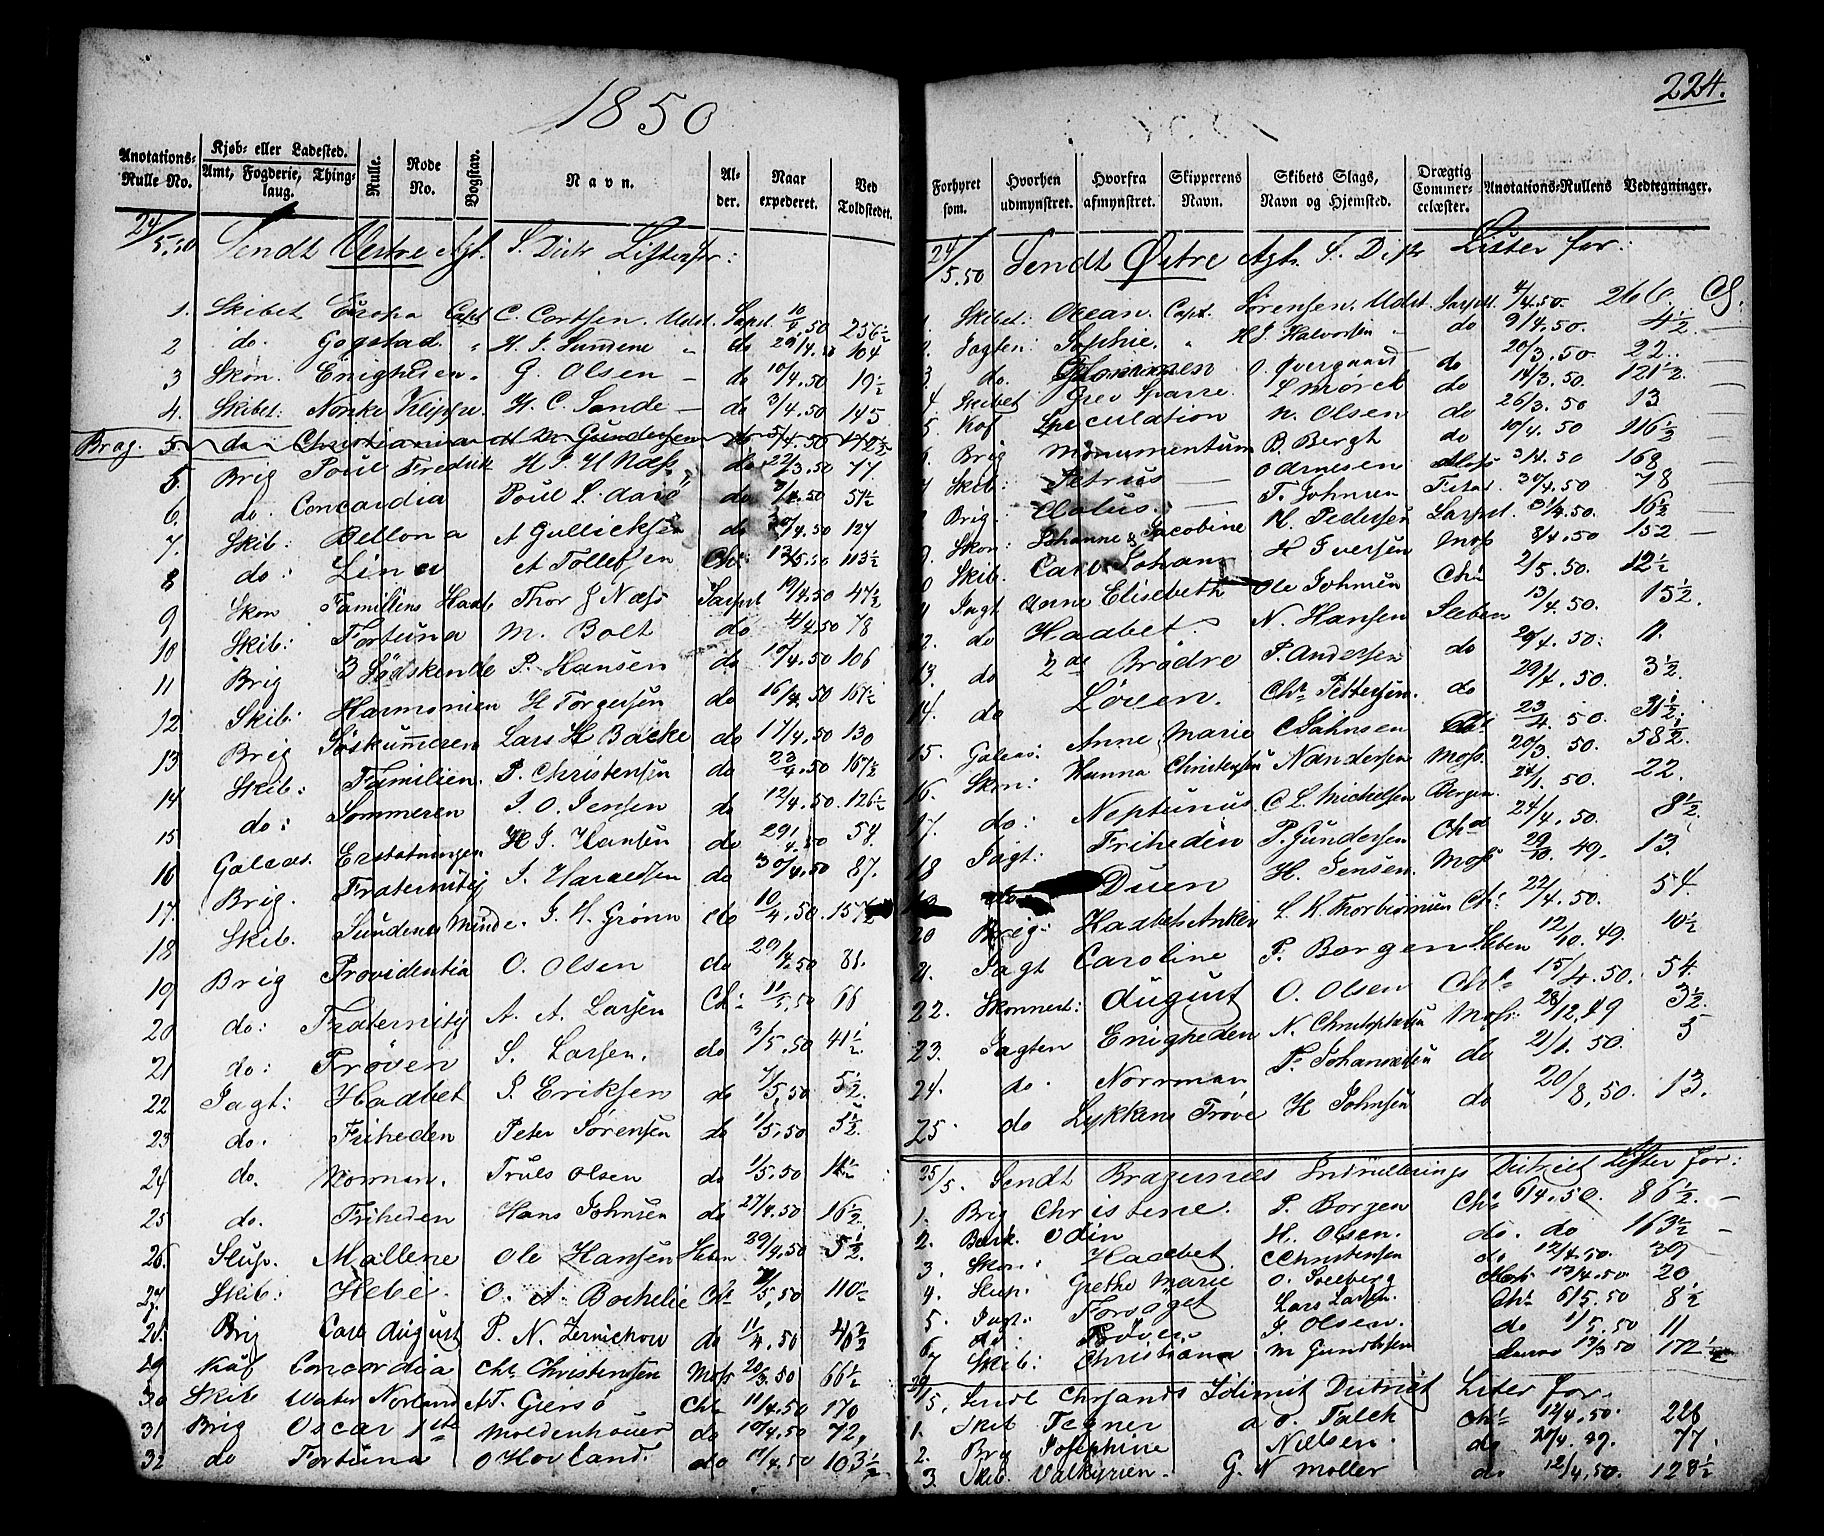 1850
224.
Anotations-Rulle No. Kjøb- eller Ladested. Amt, Fogderie, Thinglaug. Rulle. Rode No. Bogstav. Navn. Alder. Naar expederet. Ved Toldstedet.
24/5.50 Sendt Vestre Agt. S. Distr Lister for:
1. Skibet Europa Capt C. Cortsen. Udst. Sarpst 10/4.50 256½
2 do. Gogstad " H. J. Sundene " do 29/4.50 104
3 Skon. Enigheden " G. Olsen – do 10/4.50 19½
4. Skibet: Norske Klippe. H. C. Sande – do 3/4.50 145
Brag. 5. do Christiania A M Gundersen do 5/4.50 172½
5. Brig Poul Fredrik H P H Næss do 22/3.50 77
6. do. Concordia Poul L. do 3/4.50 57½
7. Skib: Bellona A Gullicksen do 30/4.50 127
8 do: Lina A Tollefsen Chr 13/5.50 113½
9 Skon Familiens Haab Thor J Næss Sarpst 19/4.50 47½
10 Skib: Fortuna M. Bolt do 4/4.50 78
11 Brig 3 Södskende P. Hansen do. 10/4.50 106
12 Skib: Harmonien H Torgersen do 16/4.50 167½
13 Brig Söskummeren Lars H Backe do 17/4.50 130
14 Skib: Familien. P. Christensen do 23/4.50 167½
15 do: Sommeren J. O. Jensen do 12/4.50. 126½
16 Galeas. Erstatningen H J. Hansen do 29/4.50 54.
17. Brig. Fraternitij J. Haraldsen do 30/4.50 87.
18 Skib. Sundenes Minde. J. H. Grönn do 10/4.50. 157½
19 Brig Providentia O. Olsen do 29/4.50 81.
20 do: Fraternitij A. A. Larsen Chr 11/5.50 66
21 do: Pröven S. Larsen. do 3/5.50 41½
22 Jagt: Haabet S. Eriksen do 7/5.50 5½
23 do. Friheden Peter Sörensen do 1/5.50 5½
24 do. Norman. Truls Olsen do 1/5.50 11½
25 do. Friheden Hans Johnsen do 27/4.50 16½
26. Slup. Mallene Ole Hansen Steben 29/4.50 5½
27. Skib: Hebe. O. A. Bachelie Chr 7/5.50 110½
28. Brig Carl August P. N. Zernichow do 11/4.50 40½
29 Kuf Concordia Chr. Christensen Moss 20/3.50 66½
30 Skib Water Norland A T. Giersö Chr 11/4.50 170
31 Brig Oscar 1ste Moldenhauer do 10/4.50 72,
32 do Fortuna O Hovland. do 17/4.50 103½
Forhyret som. Hvorhen udmynstret. Hvorfra afmynstret. Skipperens Navn. Skibets Slags, Navn og Hjemsted. Drægtig Commercelæster. Anotations-Rullens Vedtegninger.
24/5.50 Sendt Østre Agtr. S. Distr Lister for:
Skibet: Ocean. Capt. Sörensen. Udst. Sarpst. 4/4.50. 266. C.
Jagten: Sophie. " H J. Halvorsen – do 9/4.50. 4½ –
3 do. Flommen O. Overgaard do 20/3.50 22.
4 Skibet Grev Sparre L Moret do 14/3.50. 121½
5. Kof Speculation N. Olsen do 26/3.50 13
6. Brig Monumentum B. Bergh do 10/4.50 116½ –
7 Skib: Petrus – O Arnesen Moss 3/4.50 168 –
Brig. Clalus. – T. Johnsen Fistad 30/4.50 78 –
9. Skon: Johanne & Jacobine M. Pedersen Sarpst. 3/4.50. 16½ –
Skib. Carl Johan H Iversen Moss 3/4.50 152 –
Jagt Anne Elisebeth Ole Johnsen Chr 2/5.50. 12½
12. do Haabet. N. Hansen Steben 13/4.50. 15½.
13. do 2de Brödre P. Andersen do 20/4.50. 11.
14. do Löven. Chr Pettersen. do 29/4.50. 3½
15. Galeas: Anne Marie C Jahnsen do: 23/4.50. 31½
16. Skon: Hanna Christensen N Andersen Moss. 20/3.50. 58½.
17. do: Neptunus C L. Michelsen Bergen. 24/1.50. 22.
18 Jagt: Friheden P. Gundersen Chra 24/4.50. 8½.
19 do Duen H. Jensen Moss 29/10.49. 13.
20 Brig: Haabets Anker L. R. Thorbiörnsen Chr. 22/4.50. 54
21. Jagt Caroline P. Borgen Steben 12/10.49. 10½
22. Skonnert: August O. Olsen Chr 15/4.50. 54.
23. Jagten Enigheden N. Christophersen Moss. 28/12.49 3½.
24. do. Norrman P. Johannesen do 2/1.50. 5
25. do Lykkens Pröve H Johnsen do 20/8.50. 13.
25/5. Sendt Bragernæs Indrullerings District Lister for:
1. Brig Christine. P. Borgen Chr 6/4.50. 86½. –
2. Bark. Odin H. Olsen. do. do 163½ –
3. Skon: Haabet C Christensen do 12/4.50. 39
4. Slup: Grethe Marie O. Solberg Moss 12/4.50 20
5. Jagt: Forsöget Lars Larsen. Chr. 6/5.50 8½
6. do: Pröven J. Olsen. do 1/5.50 11
7 Skib: Christiana M Gundersen 13/3.50 172½
29/5. Sendt Chrsands Idimit District Lister for.
1. Skib Tegner A. O. Falck Chr 12/4.50. 226
2. Brig Josephine Nielsen. do 20/4.49. 77.
3. Skib. Valkyrien. G. N Möller do 12/4.50. 128½